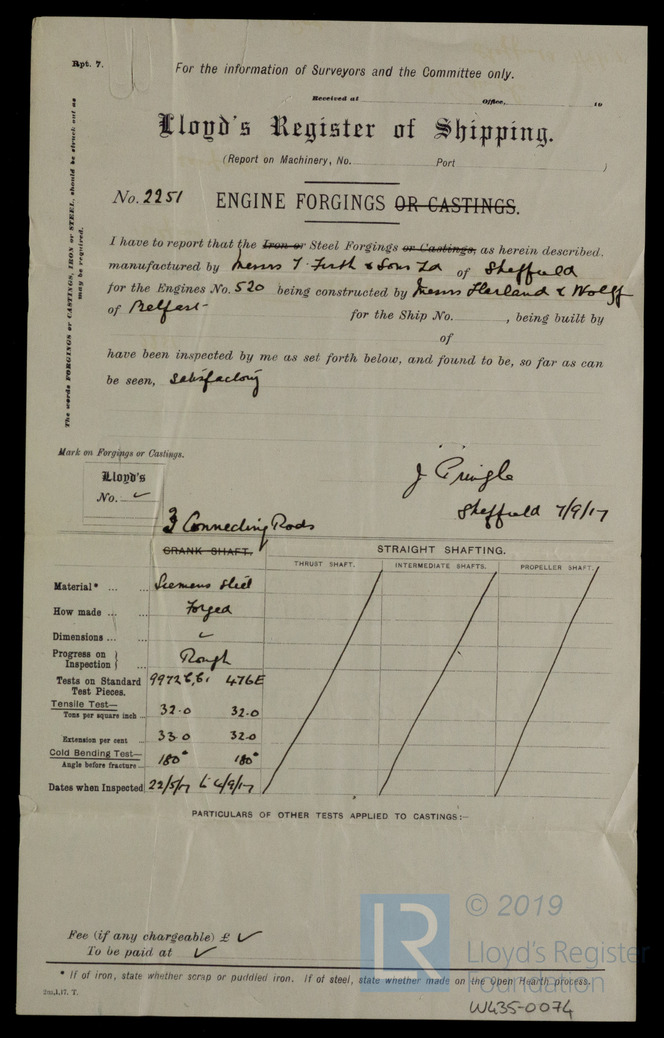 Rpt. 7.
For the information of Surveyors and the Committee only.
Received at Office, 19
Lloyd's Register of Shipping.
(Report on Machinery, No. Port )
No. 2251 ENGINE FORGINGS OR CASTINGS.
The words FORGINGS or CASTINGS, IRON or STEEL, should be struck out as may be required.
I have to report that the Iron or Steel Forgings or Castings, as herein described,
manufactured by Messrs T. Firth & Sons Ld of Sheffield
for the Engines No. 520 being constructed by Messrs Harland & Wolff
of Belfast for the Ship No. , being built by
of
have been inspected by me as set forth below, and found to be, so far as can
be seen, satisfactory
Mark on Forgings or Castings.
Lloyd's
No. ✓
J Pringle
Sheffield 7/9/17
3 Connecting Rods
CRANK SHAFT. STRAIGHT SHAFTING.
THRUST SHAFT. INTERMEDIATE SHAFTS. PROPELLER SHAFT.
Material* ... ... Siemens Steel
How made ... ... Forged
Dimensions ... ... ✓
Progress on Inspection } ... Rough
Tests on Standard Test Pieces. 476E
Tensile Test—
Tons per square inch ... 32.0 32.0
Extension per cent ... 33.0 32.0
Cold Bending Test—
Angle before fracture ... 180° 180°
Dates when Inspected 22/5/17 to 4/9/17
PARTICULARS OF OTHER TESTS APPLIED TO CASTINGS:—
Fee (if any chargeable) £ ✓
To be paid at ✓
* If of iron, state whether scrap or puddled iron. If of steel, state whether made on the Open Hearth process.
2m,1,17. T.
© 2019
LR
Lloyd's Register
Foundation
W435-0074